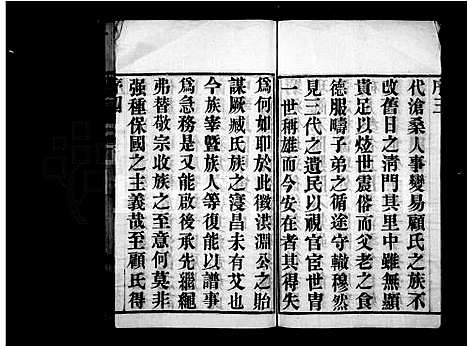 序三
代滄桑人事變易顧氏之族不
改舊日之清門其里中雖無顯
貴足以炫世震俗而父老之食
德服疇子弟之循途守轍穆然
見三代之遺民以視官宦世冑
一世稱雄而今安在者其得失
為何如耶於此徵洪淵公之貽
謀厥臧氏族之寖昌未有艾也
今族宰暨族人等復能以譜事
為急務是又能啟後承先繼繩
弗替敬宗收族之至意何莫非
强種保國之主義哉至顧氏得
序四